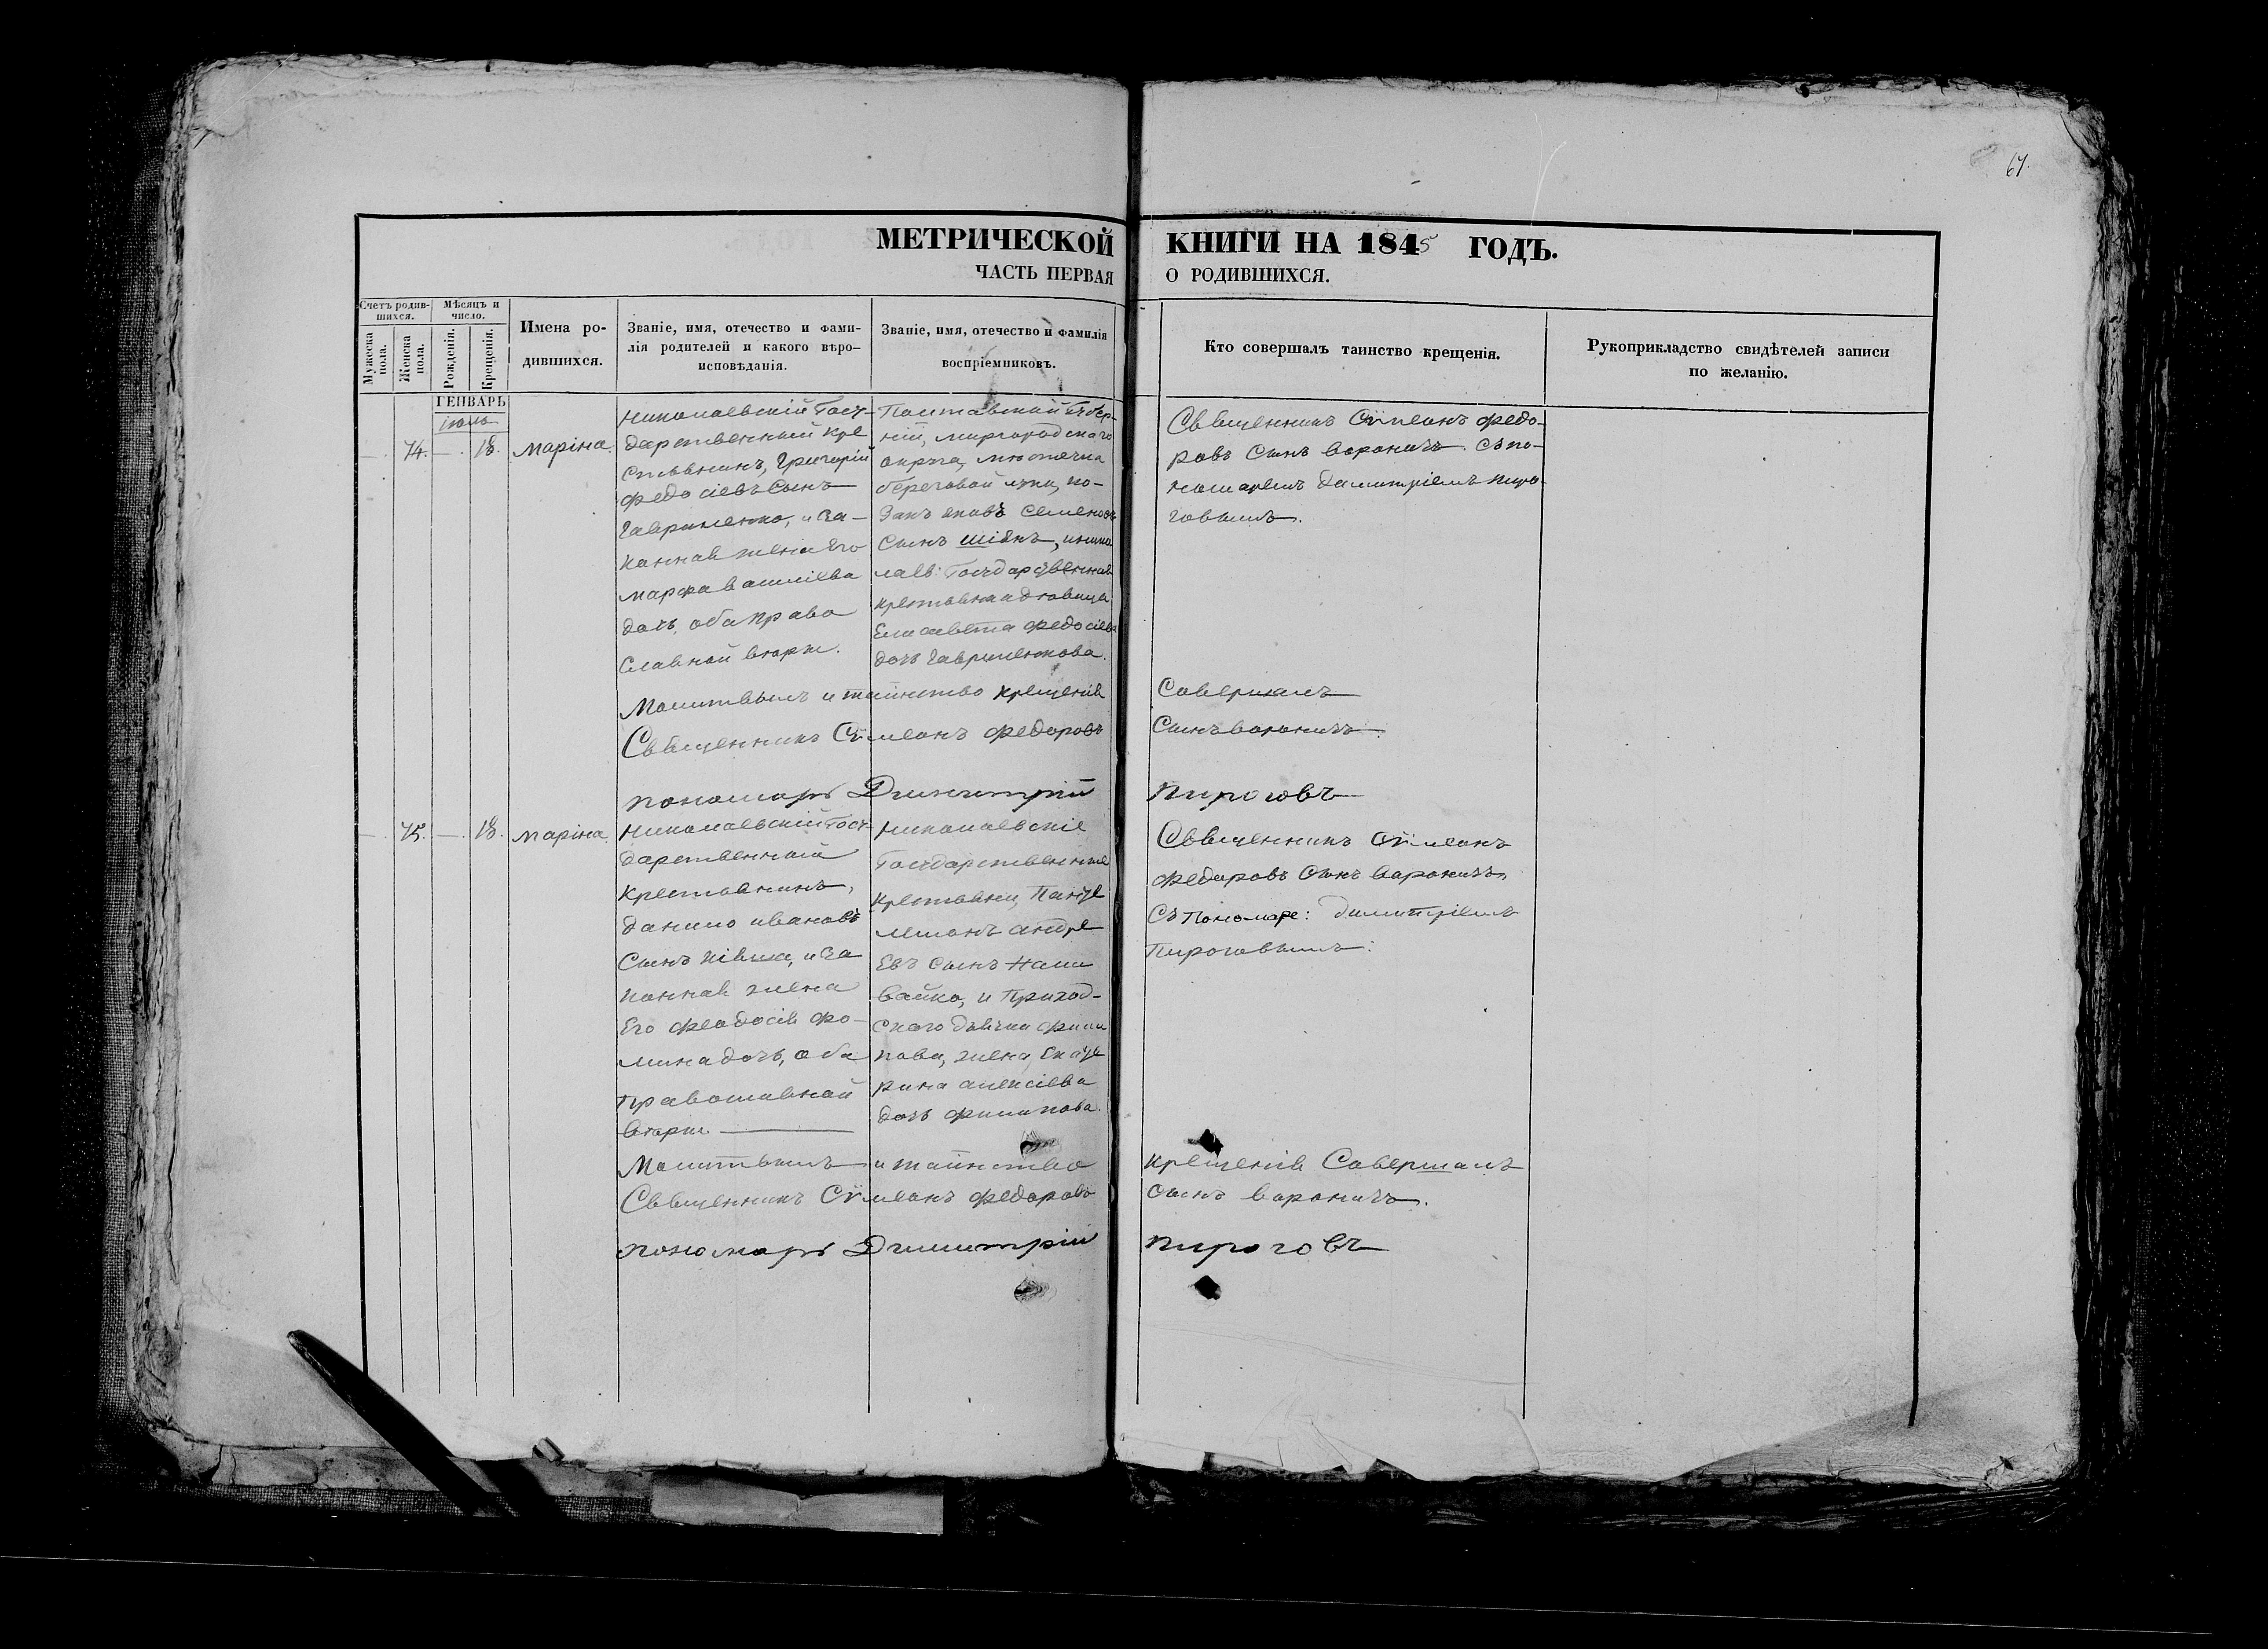 67.
МЕТРИЧЕСКОЙ КНИГИ НА 1845 ГОДЪ.
ЧАСТЬ ПЕРВАЯ О РОДИВШИХСЯ.
Счетъ родив-
шихся.
Мужеска
пола.
Женска
пола.
Мѣсяцъ и
число.
Рожденія.
Крещенія.
Имена ро-
дившихся.
Званіе, имя, отечество и фами-
лія родителей и какого вѣро-
исповѣданія.
Званіе, имя, отечество и фамилія
воспріемниковъ.
Кто совершалъ таинство крещенія.
Рукоприкладство свидѣтелей записи
по желанію.
ГЕНВАРЬ
74.
18.
Маріна.
Николаевскій Госу-
дарственный Кре
стьянинъ, Григорій
Федосіевъ Сынъ
Гавриленко, и За-
конная жена Его
Марфа Василіева
дочь, оба Право
Славной вѣры.
Полтавской Губер-
ніи, Миргородскаго
округа, мѣстечка
береговой луки, ко-
закъ яковъ Семеновъ
Сынъ, и Нико
лаев: Государственная
крестьянка дѣвица
Елисавета Федосіева
дочь Гавриленкова.
Священникъ Сѵмеонъ Федо-
ровъ Сынъ Вороничъ. Съ по-
номаремъ Димитріемъ Пиро-
говымъ.
Молитвылъ и таинство Крещенія Совершалъ
Священникъ Сѵмеонъ Федоровъ Сынъ Вороничъ.
пономарь Димитрій Пироговъ
75.
18.
Маріна.
Николаевскій Госу-
дарственный
Крестьянинъ,
Данило Ивановъ
Сынъ, и За
конная жена
Его Феодосія Фо-
мина дочь, оба
Православной
вѣры.
Николаевскіе
Государственные
Крестьяни, Панте
лемонъ Андре
Евъ Сынъ Нали
вайко, и Приход-
скаго дьячка Фили
пова, жена, Екате
рина Алексіева
дочь Филипова.
Священникъ Сѵмеонъ
Федоровъ Сынъ Вороничъ,
Съ Пономаре: Димитріемъ
Пироговымъ:
Молитвылъ и таинство Крещенія Совершалъ
Священникъ Сѵмеонъ Федоровъ Сынъ Вороничъ.
пономарь Димитрій Пироговъ